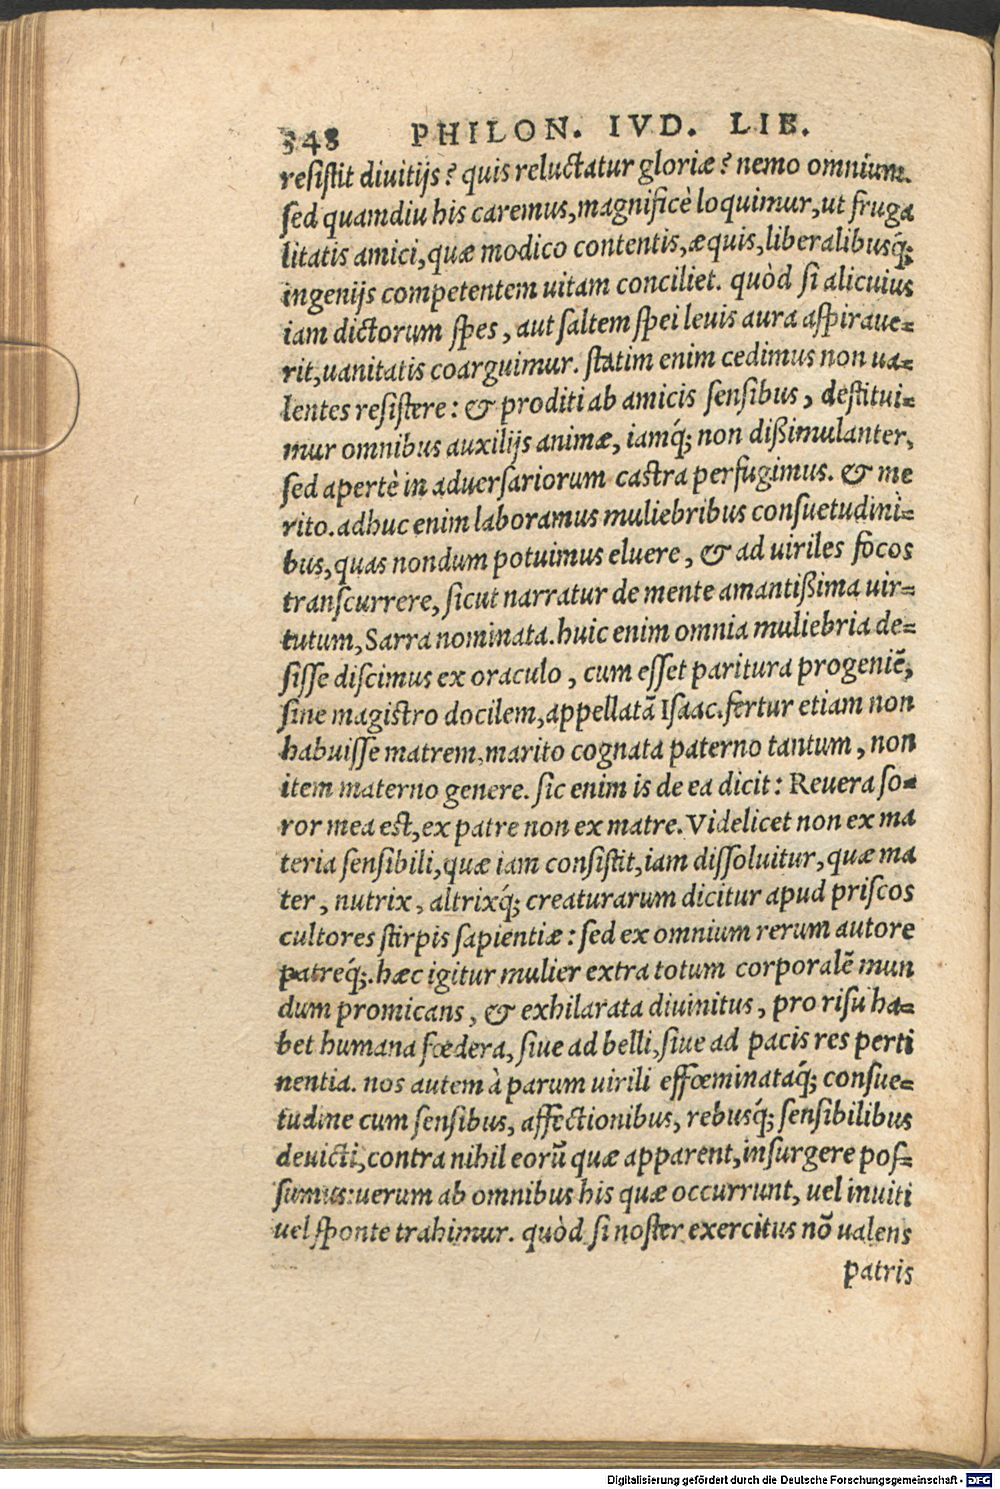 348 PHILON. IVD. LIB.
resistit divitijs? quis reluctatur gloriæ? nemo omnium.
sed quamdiu his caremus, magnificè loquimur, ut fruga
litatis amici, quæ modico contentis, æquis, liberalibusq́;
ingenijs competentem uitam conciliet. quòd si alicuius
iam dictorum spes, aut saltem spei leuis aura aspiraue-
rit, uanitatis coarguimur. statim enim cedimus non ua-
lentes resistere: & proditi ab amicis sensibus, destitui-
mur omnibus auxilijs animæ, iamq́; non dißimulanter,
sed apertè in aduersariorum castra perfugimus. & me
rito. adhuc enim laboramus muliebribus consuetudini-
bus, quas nondum potuimus eluere, & ad uiriles focos
transcurrere, sicut narratur de mente amantißima uir-
tutum, Sarra nominata. huic enim omnia muliebria de-
sisse discimus ex oraculo, cum esset paritura progeniē,
sine magistro docilem, appellatā Isaac. fertur etiam non
habuisse matrem, marito cognata paterno tantum, non
item materno genere. sic enim is de ea dicit: Reuera so-
ror mea est, ex patre non ex matre. Videlicet non ex ma
teria sensibili, quæ iam consistit, iam dissoluitur, quæ ma
ter, nutrix, altrixq́; creaturarum dicitur apud priscos
cultores stirpis sapientiæ: sed ex omnium rerum autore
patreq́;. hæc igitur mulier extra totum corporalē mun
dum promicans, & exhilarata diuinitus, pro risu ha-
bet humana fœdera, siue ad belli, siue ad pacis res perti
nentia. nos autem à parum uirili effœminataq́; consue-
tudine cum sensibus, affectionibus, rebusq́; sensibilibus
deuicti, contra nihil eorū quæ apparent, insurgere pos-
sumus: uerum ab omnibus his quæ occurrunt, uel inuiti
uel sponte trahimur. quòd si noster exercitus nō ualens
patris
Digitalisierung gefördert durch die Deutsche Forschungsgemeinschaft - DFG